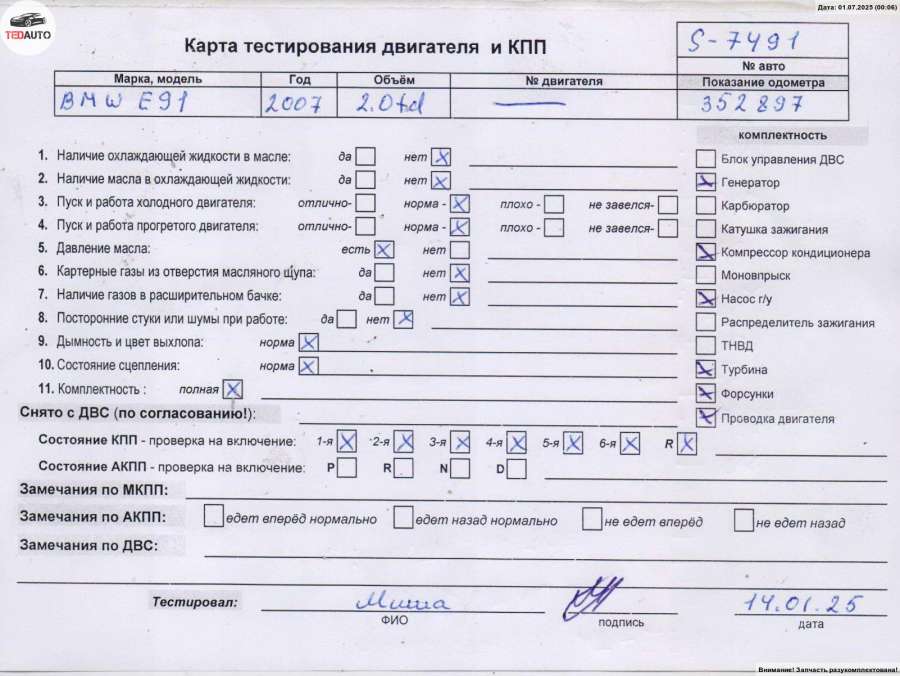 Дата: 01.07.2025 (00:06)
TEDAUTO
Карта тестирования двигателя и КПП
S-7491
№ авто
Марка, модель Год Объём № двигателя Показание одометра
BMW E91 2007 2.0td — 352897
комплектность
1. Наличие охлаждающей жидкости в масле: да нет X
Блок управления ДВС
2. Наличие масла в охлаждающей жидкости: да нет X
Генератор
3. Пуск и работа холодного двигателя: отлично- норма - X плохо - не завелся-
Карбюратор
4. Пуск и работа прогретого двигателя: отлично- норма - X плохо - не завелся-
Катушка зажигания
5. Давление масла: есть X нет
Компрессор кондиционера
6. Картерные газы из отверстия масляного щупа: да нет X
Моновпрыск
7. Наличие газов в расширительном бачке: да нет X
Насос г/у
8. Посторонние стуки или шумы при работе: да нет X
Распределитель зажигания
9. Дымность и цвет выхлопа: норма X
ТНВД
10. Состояние сцепления: норма X
Турбина
11. Комплектность : полная X
Форсунки
Снято с ДВС (по согласованию!):
Проводка двигателя
Состояние КПП - проверка на включение: 1-я X 2-я X 3-я X 4-я X 5-я X 6-я X R X
Состояние АКПП - проверка на включение: P R N D
Замечания по МКПП:
Замечания по АКПП: едет вперёд нормально едет назад нормально не едет вперёд не едет назад
Замечания по ДВС:
Тестировал: Миша 14.01.25
ФИО подпись дата
Внимание! Запчасть разукомплектована!